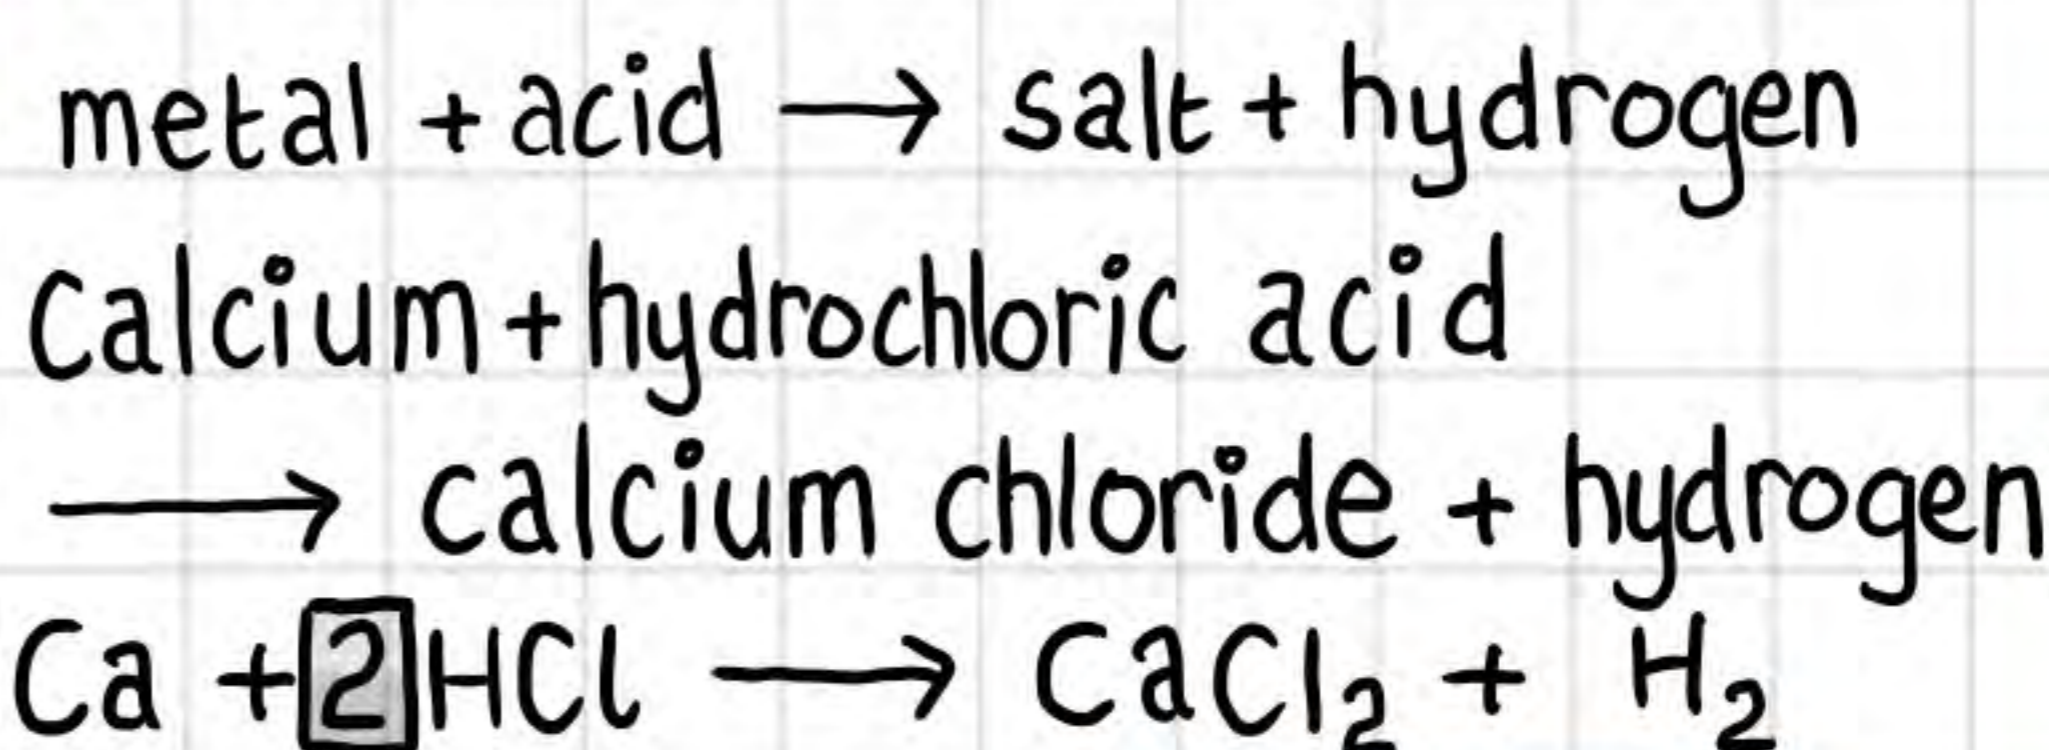 metal + acid → salt + hydrogen
Calcium + hydrochloric acid
→ calcium chloride + hydrogen
Ca + 2HCl → CaCl₂ + H₂